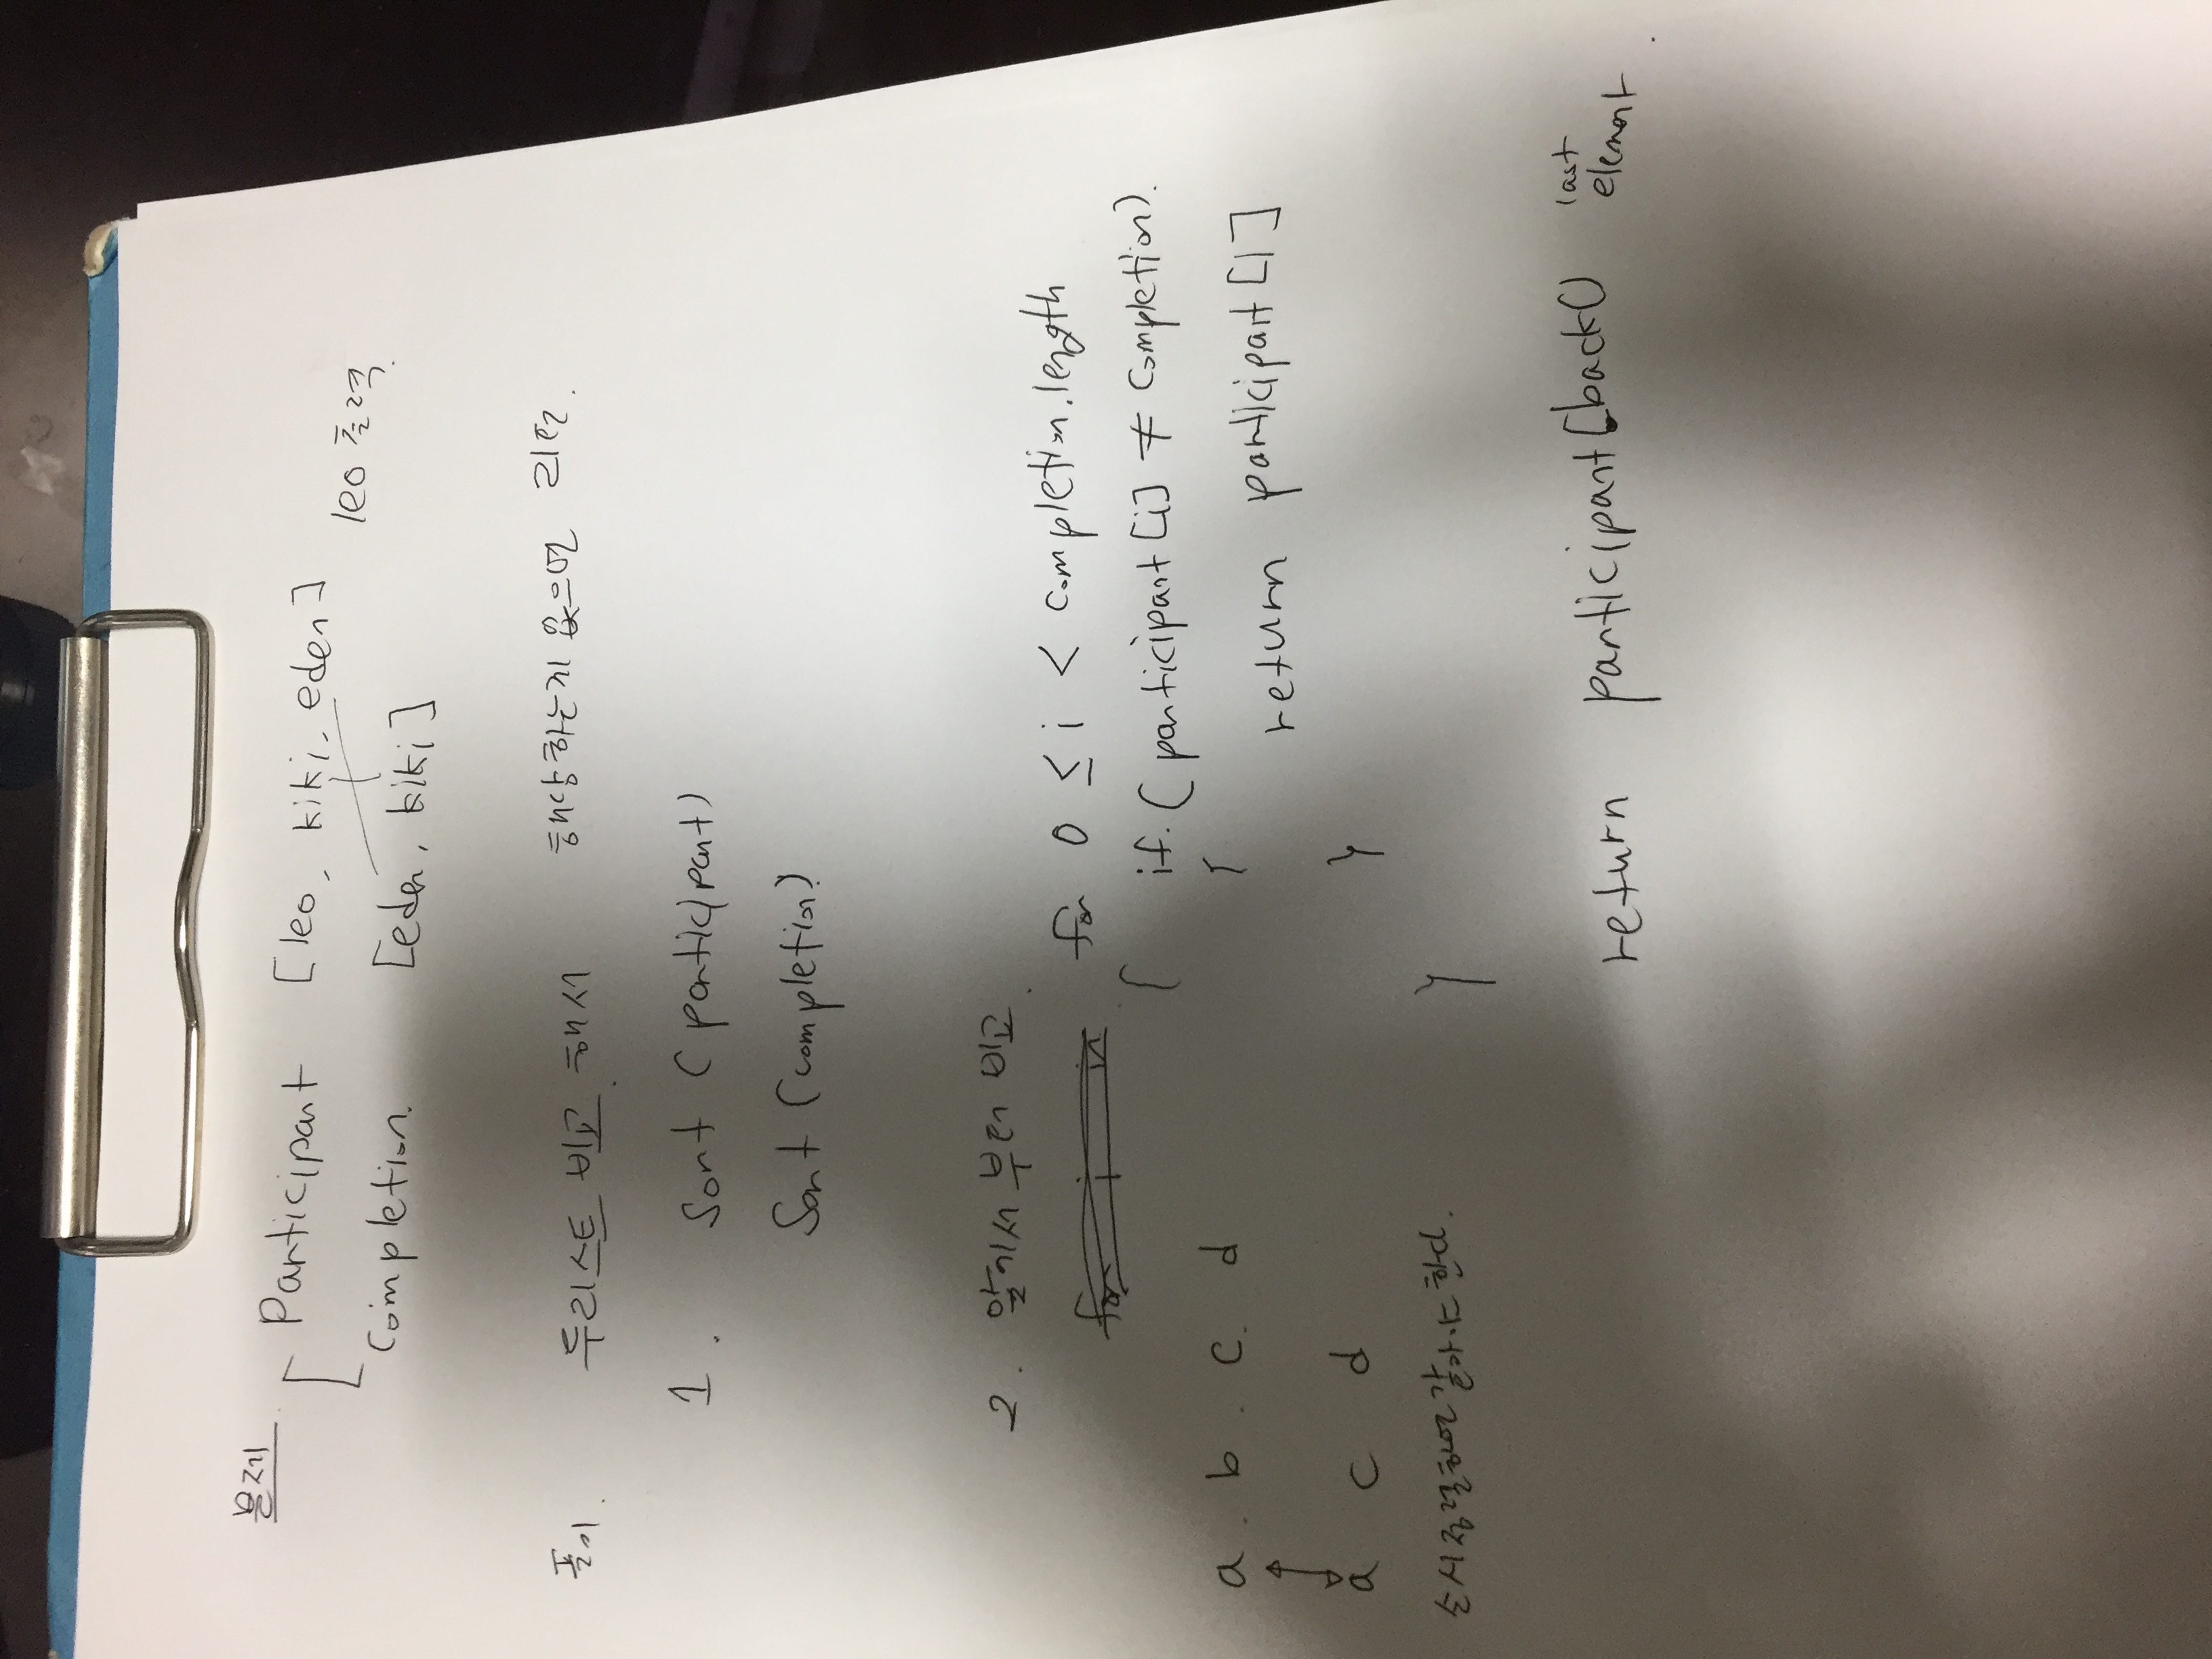 문제
Participant [leo, kiki, eden]
Completion. [eden, kiki]
leo 출력.
풀이. 두리스트 비교해서 해당하는게 없으면 리턴.
1. Sort (participant)
Sort (completion)
2. 앞에서 부터 비교.
for 0 ≤ i < completion.length
{ if. (participant[i] ≠ completion).
{
return participant[i]
}
}
a. b. c. d
a c d
순서정렬하면 같아야 한다.
return participant.back() last element.